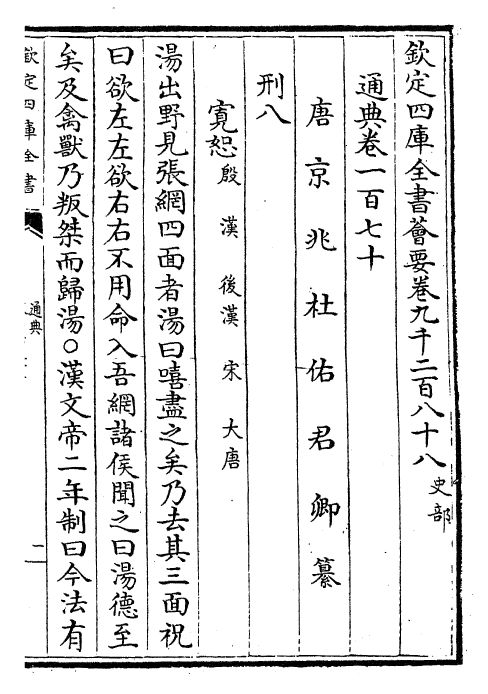 欽定四庫全書薈要卷九千二百八十八 史部
通典卷一百七十
唐京兆杜佑君卿纂
刑八
寛恕 殷 漢 後漢 宋 大唐
湯出野見張網四面者湯曰嘻盡之矣乃去其三面祝
曰欲左左欲右右不用命入吾網諸侯聞之曰湯德至
矣及禽獸乃叛桀而歸湯○漢文帝二年制曰今法有
欽定四庫全書
通典
一